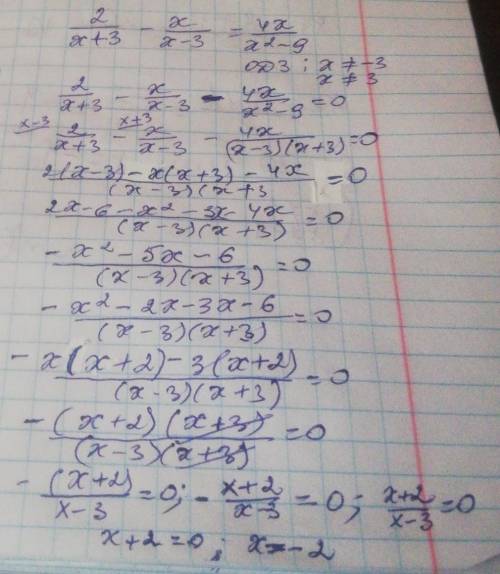 2/(x+3) - x/(x-3) = 4x/(x²-9)
ОДЗ: x ≠ -3
x ≠ 3
2/(x+3) - x/(x-3) - 4x/(x²-9) = 0
x-3 2/(x+3) - x+3 x/(x-3) - 4x/((x-3)(x+3)) = 0
(2(x-3) - x(x+3) - 4x)/((x-3)(x+3) = 0
(2x-6-x²-3x-4x)/((x-3)(x+3)) = 0
(-x²-5x-6)/((x-3)(x+3)) = 0
(-x²-2x-3x-6)/((x-3)(x+3)) = 0
(-x(x+2)-3(x+2))/((x-3)(x+3)) = 0
(-(x+2)(x+3))/((x-3)(x+3)) = 0
-(x+2)/(x-3) = 0; -(x+2)/(x-3) = 0; (x+2)/(x-3) = 0
x+2=0; x=-2